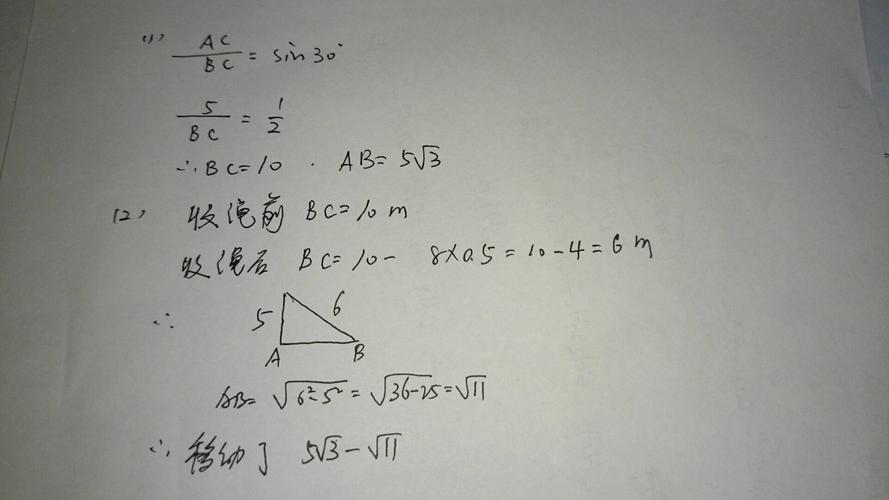 (1) AC/BC = sin30°
5/BC = 1/2
∴BC=10 . AB=5√3
(2) 收绳前 BC=10m
收绳后 BC=10-8×0.5=10-4=6m
∴ 5 6
A B
AB=√6²-5²=√36-25=√11
∴移动了 5√3-√11